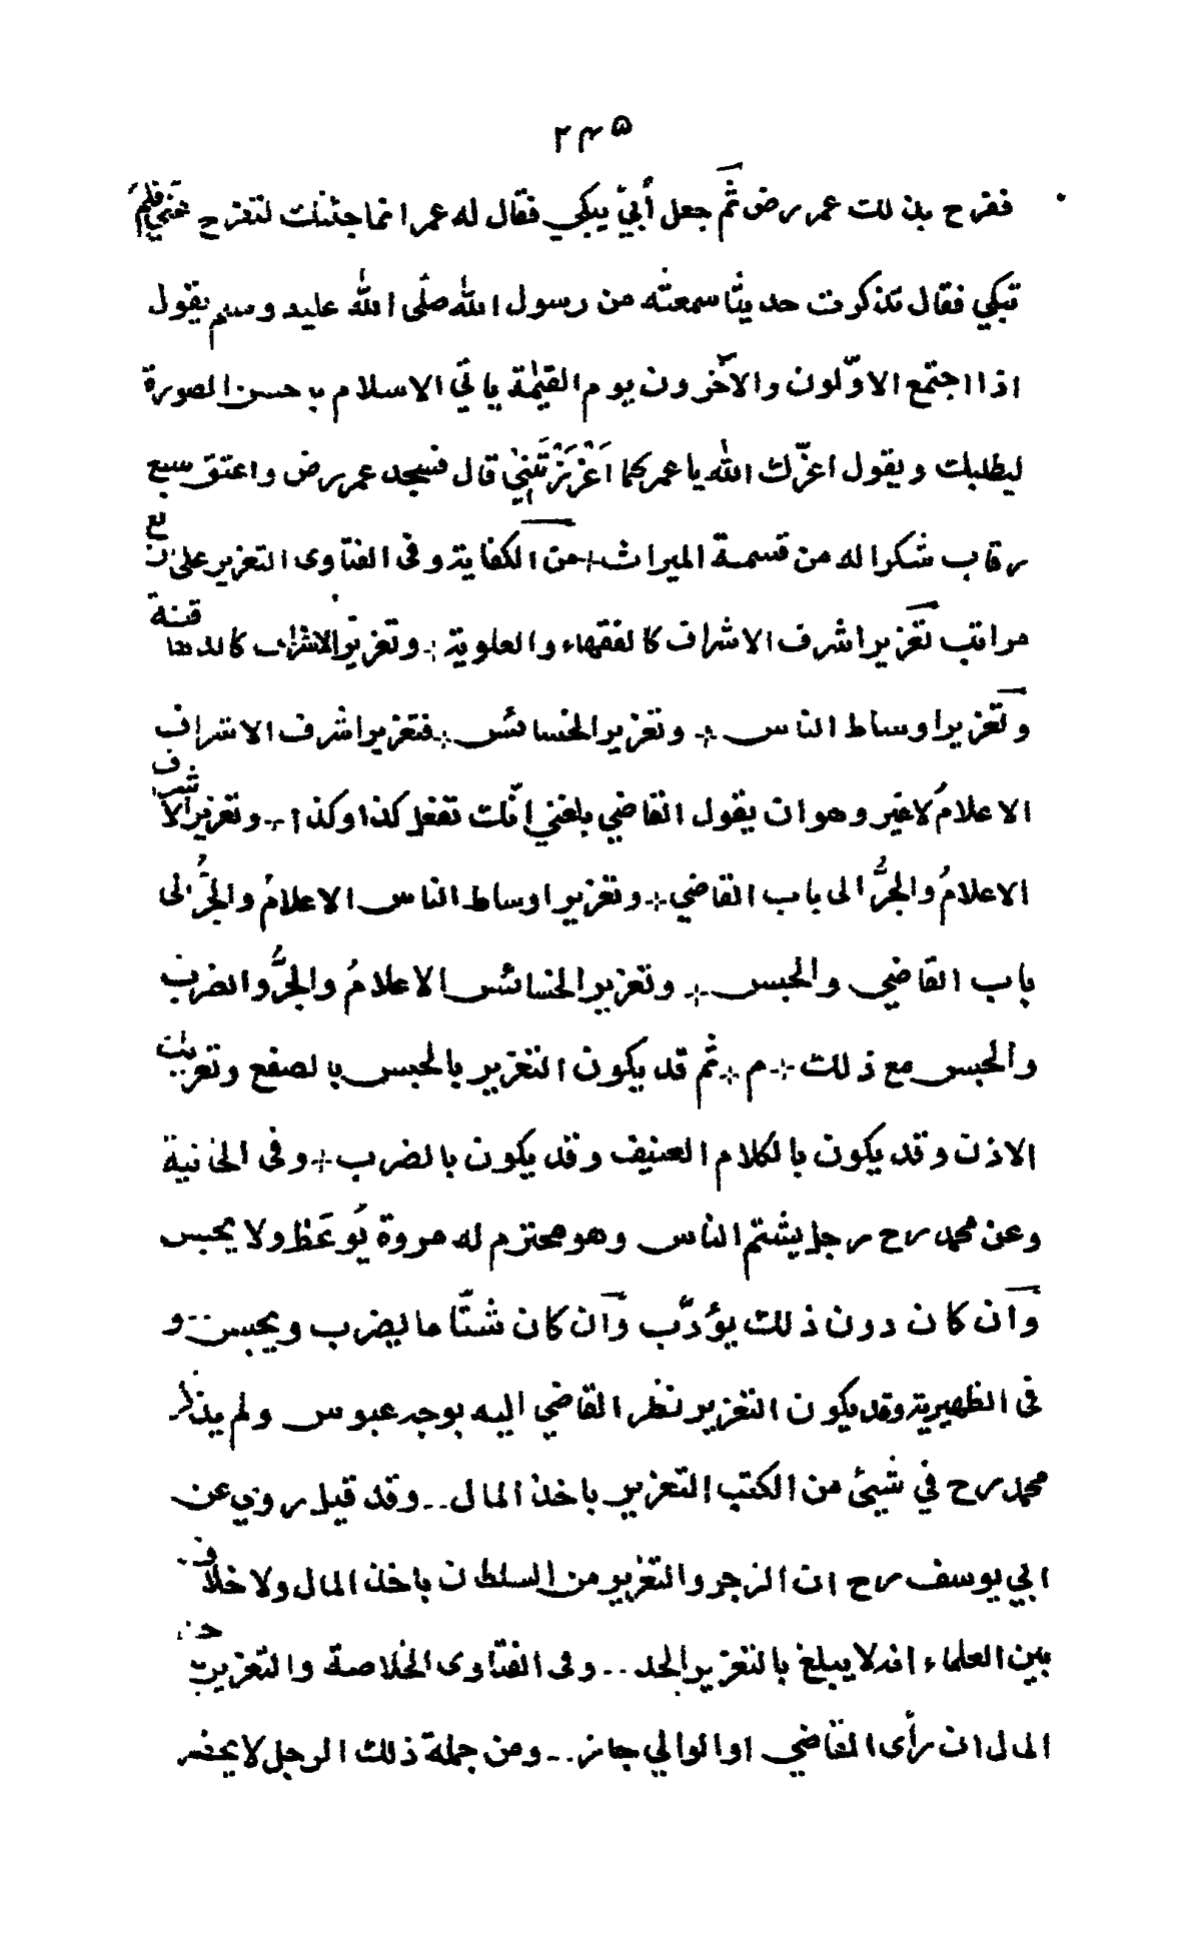 ۲۴۵
ففرح بذلك عمر رض ثمّ جعل أبيّ يبكي فقال له عمر انما جئتك لتفرح عني فلم
تبكي فقال تذكرت حديثا سمعته من رسول الله صلّى الله عليه وسلم يقول
اذا اجتمع الاوّلون والآخرون يوم القيٰمة يأتي الاسلام باحسن الصورة
ليطلبك ويقول اعزّك الله يا عمر كما اَعْزَزْتَنِيْ قال فسجد عمر رض واعتق سبع
رقاب شكرا له من قسمة الميراث ÷ من الكفاية وفى الفتاوى التعزير على اربع
مراتب تعزير اشرف الاشراف كالفقهاء والعلوية ÷ وتعزير الاشراف كالدهاقنة
وتعزير اوساط الناس ÷ وتعزير الخسائس ÷ فتعزير اشرف الاشراف
الاعلامُ لا غير وهو ان يقول القاضي بلغني انّك تفعل كذا وكذا ÷ وتعزير الاشراف
الاعلامُ والجرُّ الى باب القاضي ÷ وتعزير اوساط الناس الاعلامُ والجرُّ الى
باب القاضي والحبس ÷ وتعزير الخسائس الاعلامُ والجرُّ والضرب
والحبس مع ذلك ÷ م ÷ ثمّ قد يكون التعزير بالحبس بالصفع وتعريك
الاذن وقد يكون بالكلام العنيف وقد يكون بالضرب ÷ وفى الخانية
وعن محمد رح رجل يشتم الناس وهو محترم له مروة يُوعَظ ولا يحبس
وان كان دون ذلك يؤدّب وان كان شتّاما يضرب ويحبس .. و
فى الظهيرية وقد يكون التعزير نظر القاضي اليه بوجه عبوس ولم يذكر
محمد رح في شيئ من الكتب التعزير باخذ المال .. وقد قيل روي عن
ابي يوسف رح ان الزجر والتعزير من السلطان باخذ المال ولا خلاف
بين العلماء انه لا يبلغ بالتعزير الحد .. وفى الفتاوى الخلاصة والتعزير باخذ
المال ان رأى القاضي او الوالي جاز .. ومن جملة ذلك الرجل لا يحضر